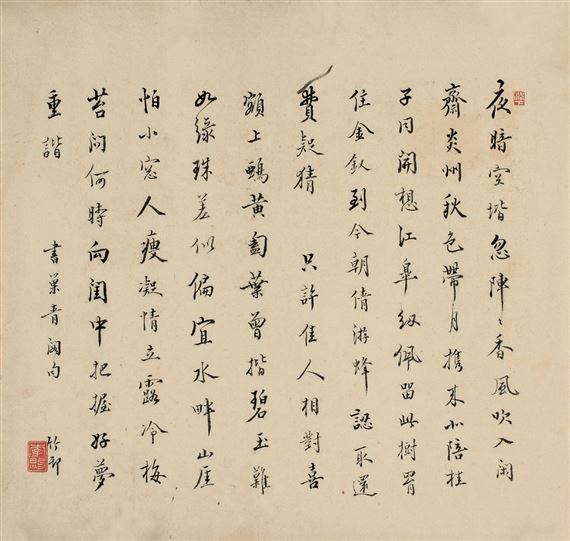 夜暗空堦忽陣〻香風吹入閑
齋炎州秋色帶月携來小陪桂
子同開想江皐紉佩留此樹罥
住金釵到今朝倩游蜂認取還
費疑猜 只許佳人相對喜
額上黃匀葉曾揩碧玉難
如緑珠差似偏宜水畔山厓
怕小窓人瘦凝情立露冷梅
苔问何時向閨中把握好夢
重諧 書巢青閣句